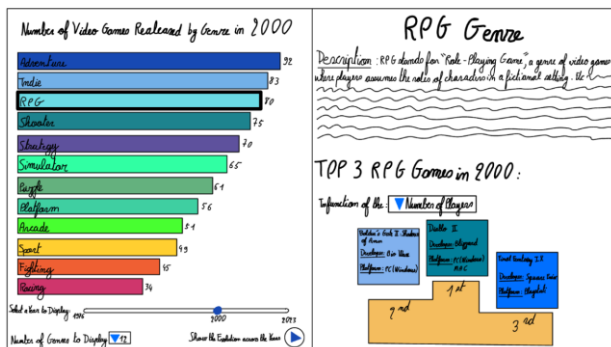 Number of Video Games Realeased by Genre in 2000
Adventure 92
Indie 83
RPG 80
Shooter 75
Strategy 70
Simulator 65
Puzzle 61
Platform 56
Arcade 51
Sport 49
Fighting 45
Racing 34
Select a Year to Display:
1976 2000 2023
Number of Genres to Display 12
Show the Evolution across the Years
RPG Genre
Description : RPG stands for "Role-Playing Game", a genre of video games
where players assumes the roles of characters in a fictional setting. Etc
TOP 3 RPG Games in 2000:
Infunction of the: Number of Players
Baldur's Gate II: Shadows
of Amn
Developer: Bio Ware
Platform: PC (Windows)
Diablo II
Developer: Blizzard
Platform: PC (Windows)
MAC
Final Fantasy IX
Developer: Square
Platform:
1st
2nd
3rd